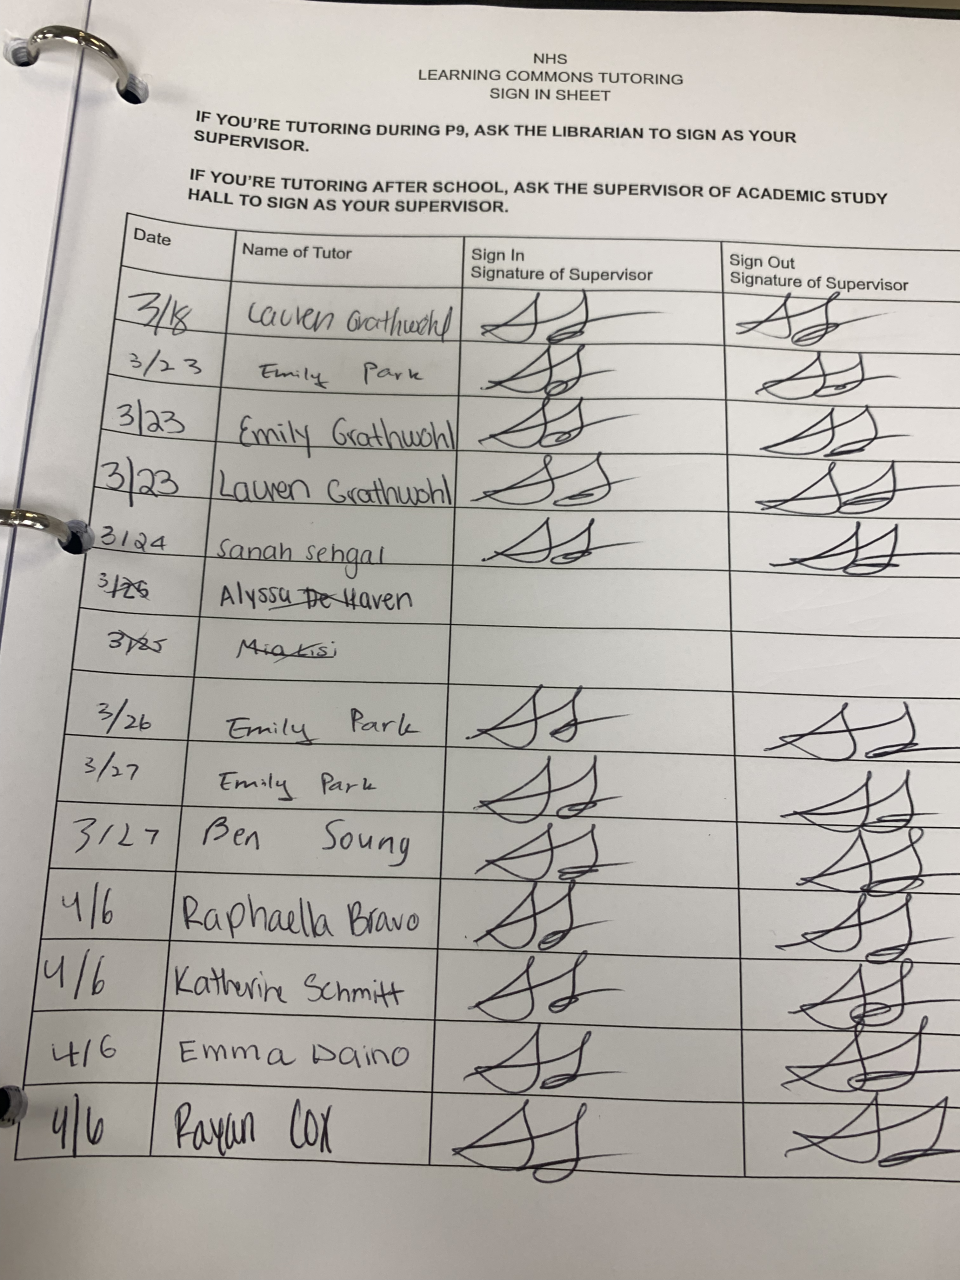 NHS
LEARNING COMMONS TUTORING
SIGN IN SHEET
IF YOU'RE TUTORING DURING P9, ASK THE LIBRARIAN TO SIGN AS YOUR
SUPERVISOR.
IF YOU'RE TUTORING AFTER SCHOOL, ASK THE SUPERVISOR OF ACADEMIC STUDY
HALL TO SIGN AS YOUR SUPERVISOR.
Date Name of Tutor Sign In Sign Out
Signature of Supervisor Signature of Supervisor
3/18 Lauren Grathwohl
3/23 Emily Park
3/23 Emily Grathwohl
3/23 Lauren Grathwohl
3/24 Sanah Sehgal
3/25 Alyssa De Haven
3/25 Mia Lisi
3/26 Emily Park
3/27 Emily Park
3/27 Ben Soung
4/6 Raphaella Bravo
4/6 Katherine Schmitt
4/6 Emma Daino
4/6 Rayan Cox